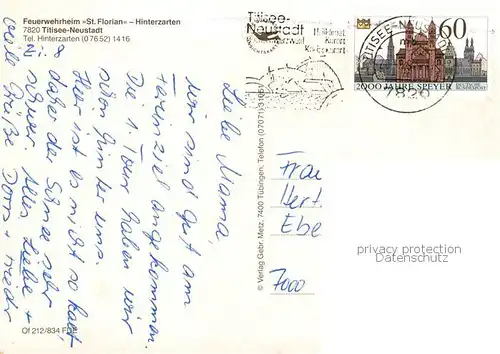 Feuerwehrheim »St. Florian« – Hinterzarten
7820 Titisee-Neustadt
Tel. Hinterzarten (0 76 52) 14 16
Titisee-
Neustadt
Kurort
TITISEE-NEUSTADT
7820
60
2000 JAHRE SPEYER
DEUTSCHE
BUNDESPOST
Liebe Mama,
wir sind gut am
Ferienziel angekommen.
Die 1. Tour haben wir
schon hinter uns.
Hier ist es nicht so kalt,
daher der Schnee sehr
schwer. Alles Liebe +
viele Grüße
© Verlag Gebr. Metz, 7400 Tübingen, Telefon (07071)
Frau
Hert.
Ebe
7000
privacy protection
Datenschutz
Of 212/834 FDE